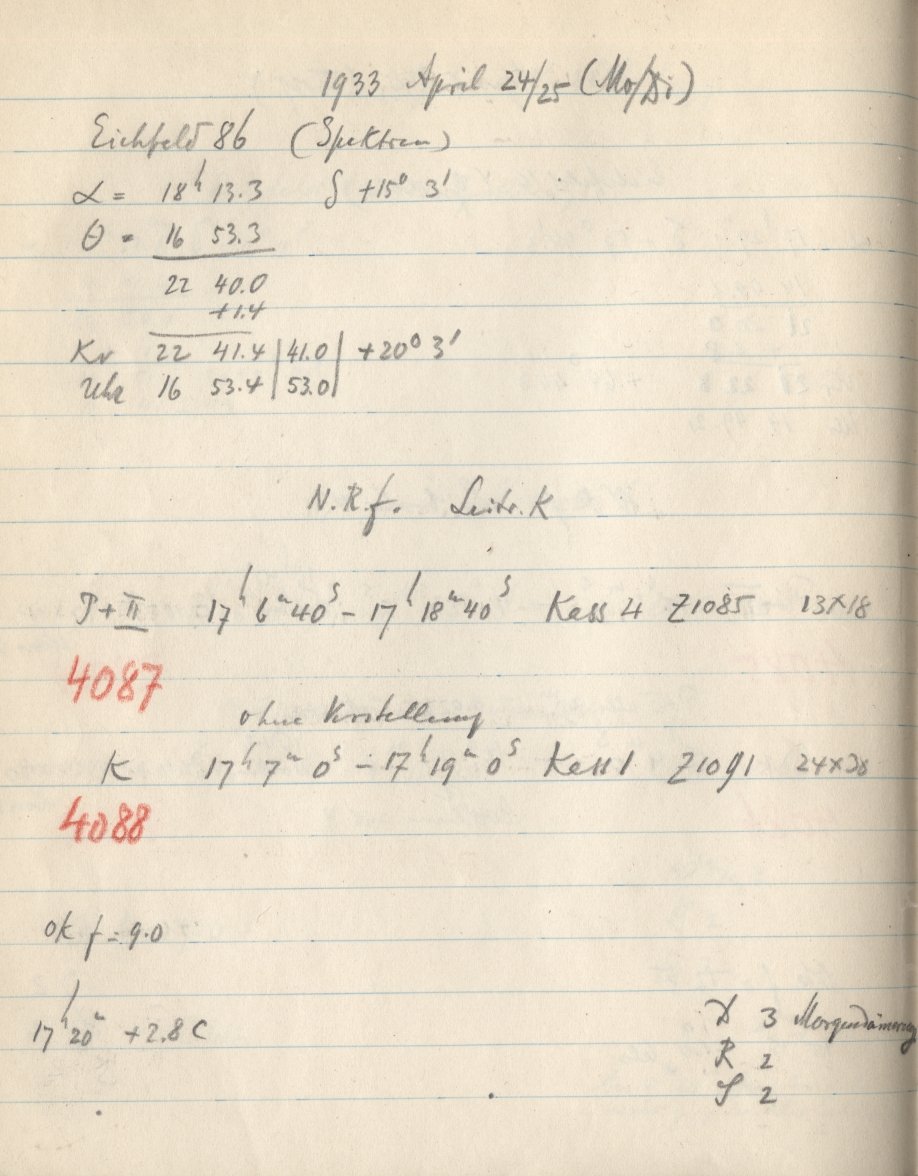 1933 April 24/25 (Mo/Di)
Eichfeld 86 (Spektren)
α = 18h 13.3 δ +15° 3'
θ = 16 53.3
22 40.0
+1.4
Kr 22 41.4 | 41.0 | +20° 3'
Uhr 16 53.4 | 53.0 |
N.R.f. Leitr. K
T+II 17h 6m 40s – 17h 18m 40s Kass 4 Z1085 13×18
4087
ohne Verstellung
K 17h 7m 0s – 17h 19m 0s Kass 1 Z1091 24×28
4088
ok f = 9.0
17h 20m +2.8 C
D 3 Morgendämerung
R 2
S 2